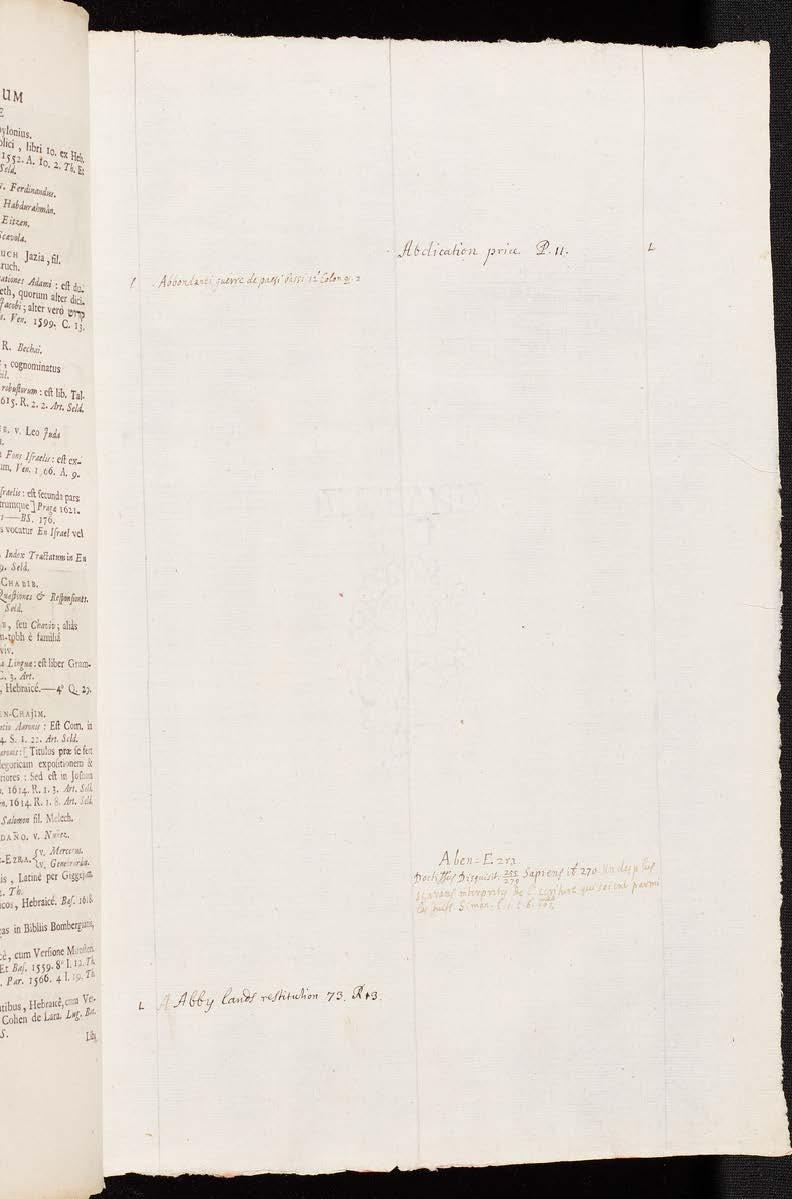 UM
E
ylonius.
lici, libri 10. ex Heb.
1552. A. 10. 2. Th. Et
Seld.
v. Ferdinandus.
Habdurahmàn.
Eitzen.
Scævola.
UCH Jazia, fil.
ruch.
ationes Adami : est du-
eth, quorum alter dici-
Jacobi; alter verò קרוש
s. Ven. 1599. C. 13.
R. Bechai.
, cognominatus
il.
robustorum : est lib. Tal-
615. R. 2. 2. Art. Seld.
v. Leo Juda
Fons Israelis : est ex-
um. Ven. 1566. A. 9.
sraelis : est secunda pars
trumque] Praga 1621.
1—BS. 176.
s vocatur En Israel vel
Index Tractatum in En
9. Seld.
CHABIB.
Quæstiones & Responsiones.
Seld.
, seu Chaviv; aliàs
m-tobh è familiâ
viv.
a Linguæ : est liber Gram-
C. 3. Art.
, Hebraicé.—4° Q. 27.
EN-CHAJIM.
atio Aaronis : Est Com. in
4. S. 1. 22. Art. Seld.
aronis : [Titulos præ se fert
legoricam expositionem &
riores : Sed est in Josuam
1614. R. 1. 3. Art. Seld.
en. 1614. R. 1. 8. Art. Seld.
Salomon fil. Melech.
DAÑO. v. Nuñez.
-EZRA. {v. Mercerus.
{v. Genebrardus.
is, Latinè per Giggejum.
2. Th.
icos, Hebraicé. Bas. 1618.
gas in Bibliis Bombergianis,
cè, cum Versione Münsteri.
Et Bas. 1559. 8° I. 12. Th.
Par. 1566. 4 I. 19. Th.
atibus, Hebraicè, cum Ver-
Cohen de Lara. Lug. Bat.
S.
Lib.
Abdication price P. 11. L
l Abbondanti guerre de paesi bassi 12° Colon 91. 2
Aben-Ezra
Doctissus Disquisit. 255/270 Sapiens it 270 Un des plus
scavans interpretes de l'Ecriture qui soient parmi
les Juifs Simon. l. 1. c. 6.
L A Abby lands restitution 73. P 13.